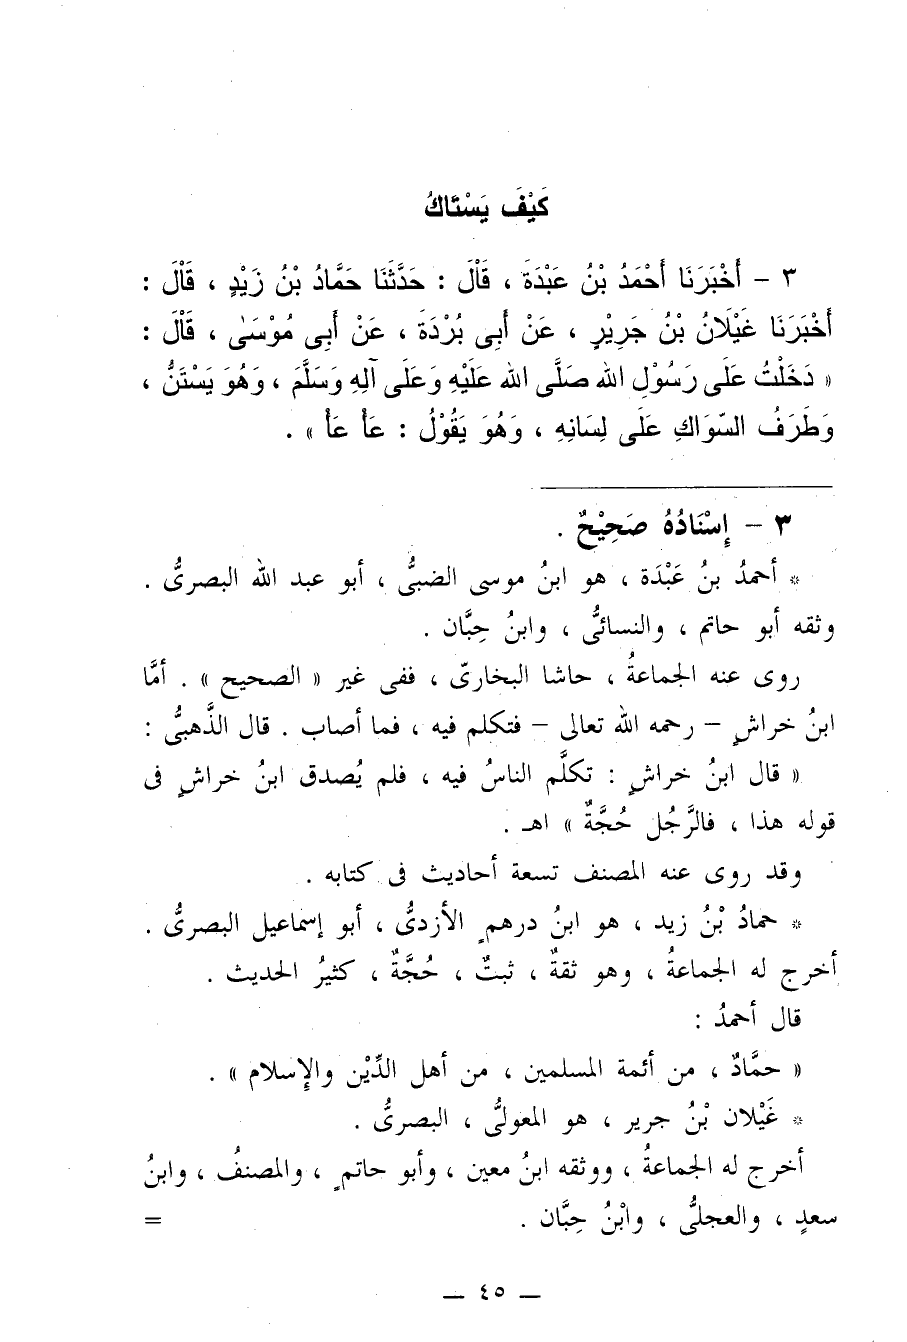 كَيْفَ يَسْتَاكُ
٣ - أَخْبَرَنَا أَحْمَدُ بْنُ عَبْدَةَ ، قَالَ : حَدَّثَنَا حَمَّادُ بْنُ زَيْدٍ ، قَالَ :
أَخْبَرَنَا غَيْلَانُ بْنُ جَرِيْرٍ ، عَنْ أَبِى بُرْدَةَ ، عَنْ أَبِى مُوْسَىٰ ، قَالَ :
« دَخَلْتُ عَلَى رَسُوْلِ الله صَلَّى الله عَلَيْهِ وَعَلَى آلِهِ وَسَلَّمَ ، وَهُوَ يَسْتَنُّ ،
وَطَرَفُ السِّوَاكِ عَلَى لِسَانِهِ ، وَهُوَ يَقُوْلُ : عَأْ عَأْ » .
٣ - إِسْنَادُهُ صَحِيْحٌ .
* أحمدُ بنُ عَبْدَة ، هو ابنُ موسى الضبىُّ ، أبو عبد الله البصرىُّ .
وثقه أبو حاتم ، والنسائىُّ ، وابنُ حِبَّان .
روى عنه الجماعةُ ، حاشا البخارىّ ، ففى غير « الصحيح » . أمَّا
ابنُ خراشٍ - رحمه الله تعالى - فتكلم فيه ، فما أصاب . قال الذَّهبىُّ :
« قال ابنُ خراشٍ : تكلَّم الناسُ فيه ، فلم يُصدق ابنُ خراشٍ فى
قوله هذا ، فالرَّجُل حُجَّةٌ » اهـ .
وقد روى عنه المصنف تسعة أحاديث فى كتابه .
* حمادُ بْنُ زيد ، هو ابنُ درهمٍ الأزدىُّ ، أبو إسماعيل البصرىُّ .
أخرج له الجماعةُ ، وهو ثقةٌ ، ثبتٌ ، حُجَّةٌ ، كثيرُ الحديث .
قال أحمدُ :
« حمَّادٌ ، من أئمة المسلمين ، من أهل الدِّيْن والإسلام » .
* غَيْلان بْنُ جرير ، هو المعولىُّ ، البصرىُّ .
أخرج له الجماعةُ ، ووثقه ابنُ معين ، وأبو حاتمٍ ، والمصنفُ ، وابنُ
سعدٍ ، والعجلىُّ ، وابْنُ حِبَّان . =
— ٤٥ —